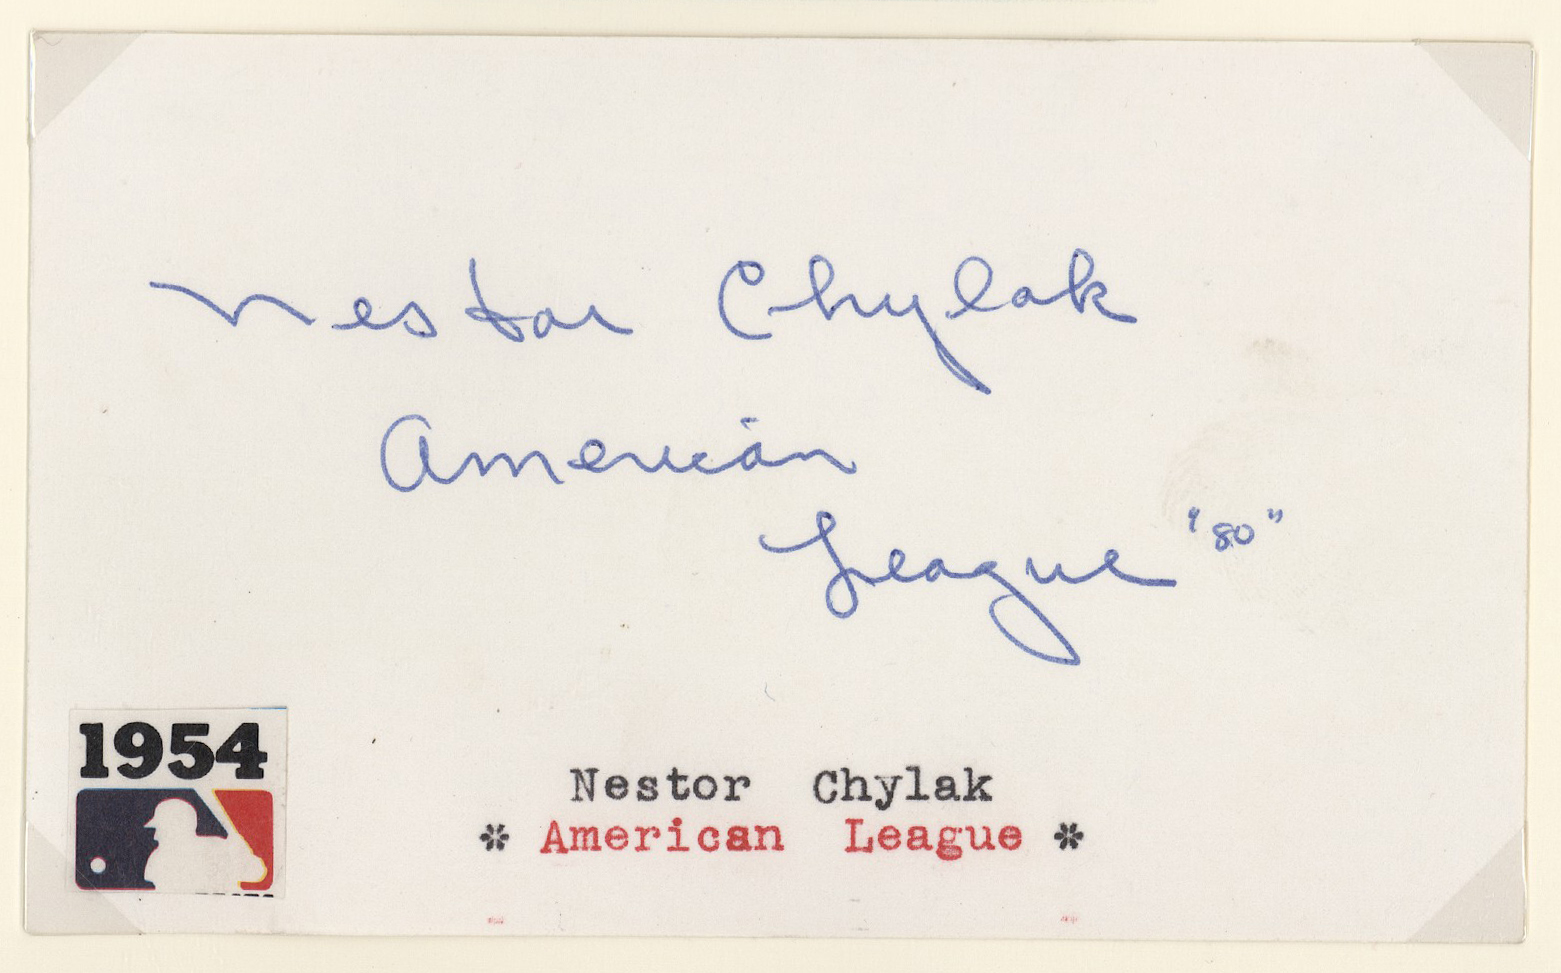 Nestor Chylak
American
League "80"
1954
Nestor Chylak
* American League *